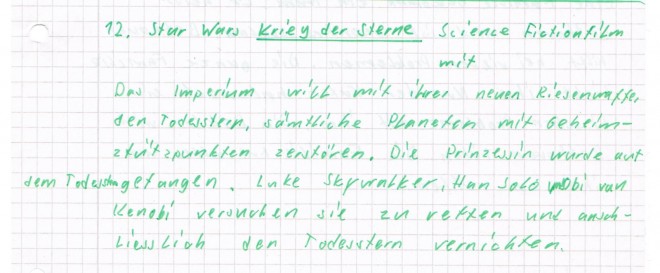 12. Star Wars Krieg der Sterne Science Fictionfilm
mit
Das Imperium will mit ihrer neuen Riesenwaffe,
den Todesstern, sämtliche Planeten mit Geheim-
stützpunkten zerstören. Die Prinzessin wurde auf
dem Todesstern gefangen. Luke Skywalker, Han Solo Obi van
Kenobi versuchen sie zu retten und ansch-
liessliah den Todesstern vernichten.